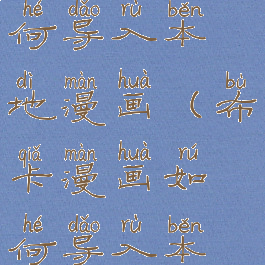 hé dǎo rù běn
何导入本
dì màn huà bù
地漫画(布
qiǎ màn huà rú
卡漫画如
hé dǎo rù běn
何导入本